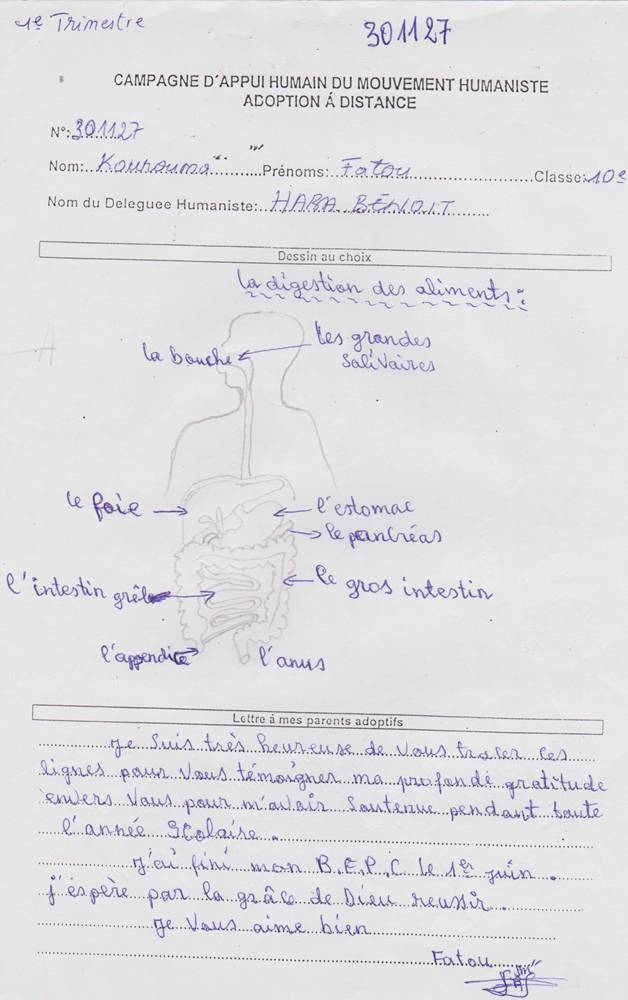 1e Trimestre
301127
CAMPAGNE D'APPUI HUMAIN DU MOUVEMENT HUMANISTE
ADOPTION Á DISTANCE
N°: 301127
Nom: Kourouma Prénoms: Fatou Classe: 10e
Nom du Deleguee Humaniste: HABA BENOIT
Dessin au choix
La digestion des aliments :
les grandes
salivaires
la bouche
le foie
l'estomac
le pancréas
l'intestin grêle
le gros intestin
l'appendice
l'anus
Lettre á mes parents adoptifs
Je suis très heureuse de vous tracer ces
lignes pour vous témoigner ma profonde gratitude
envers vous pour m'avoir soutenue pendant toute
l'année scolaire.
J'ai fini mon B.E.P.C le 1er juin.
j'espère par la grâce de Dieu reussir.
Je vous aime bien
Fatou